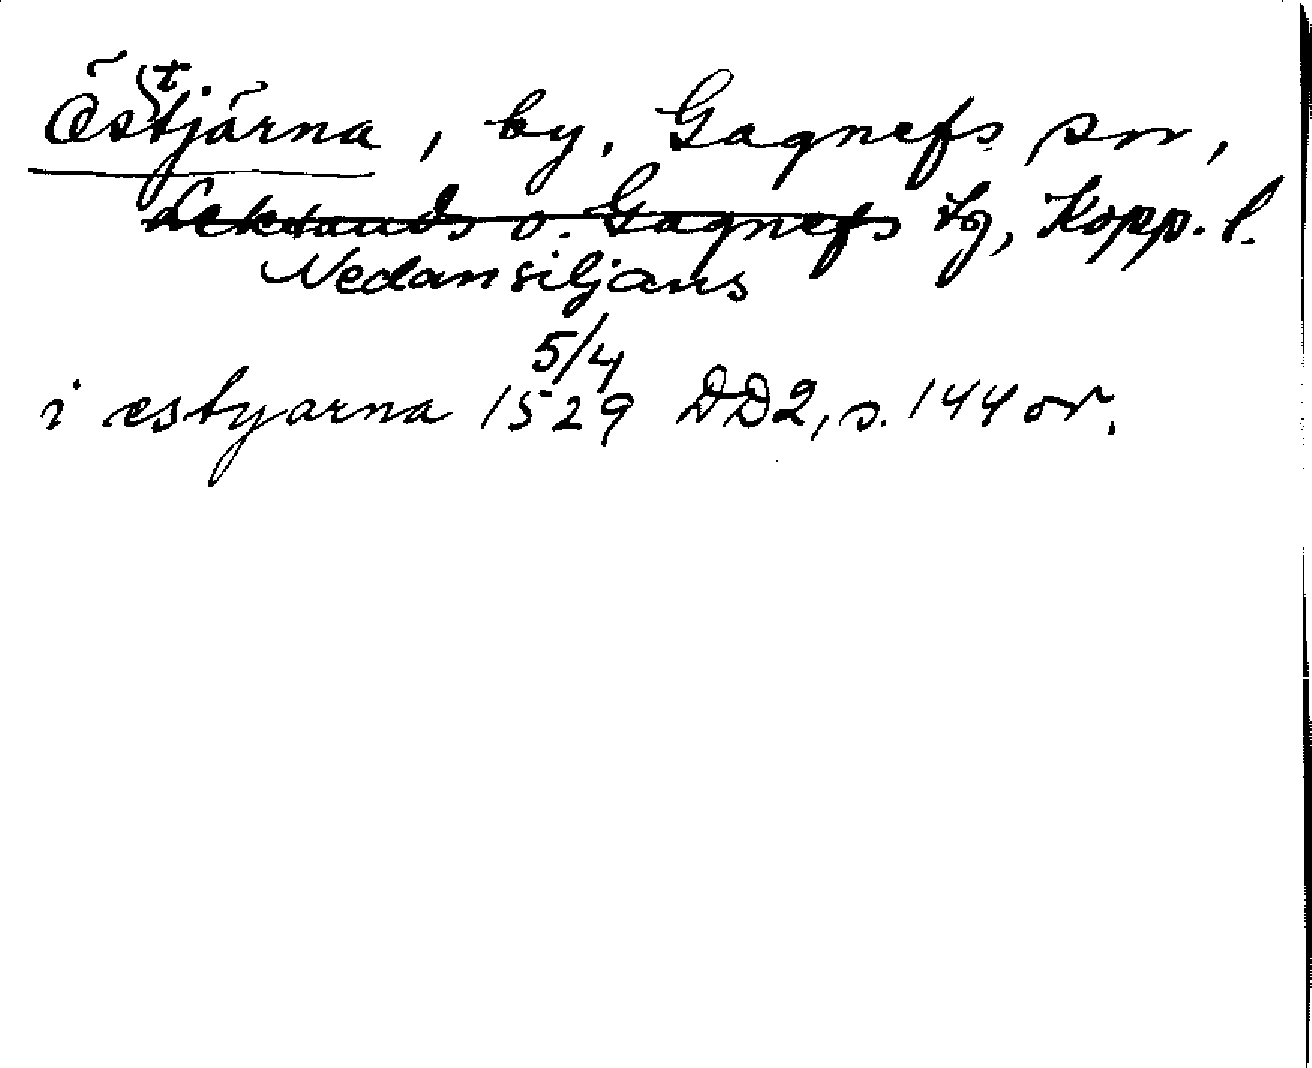 Östtjärna, by, Gagnefs sn,
Leksands o. Gagnefs tg, Kopp. l.
Nedansiljans
5/4
i estyarna 1529 DD2, s. 144 or.